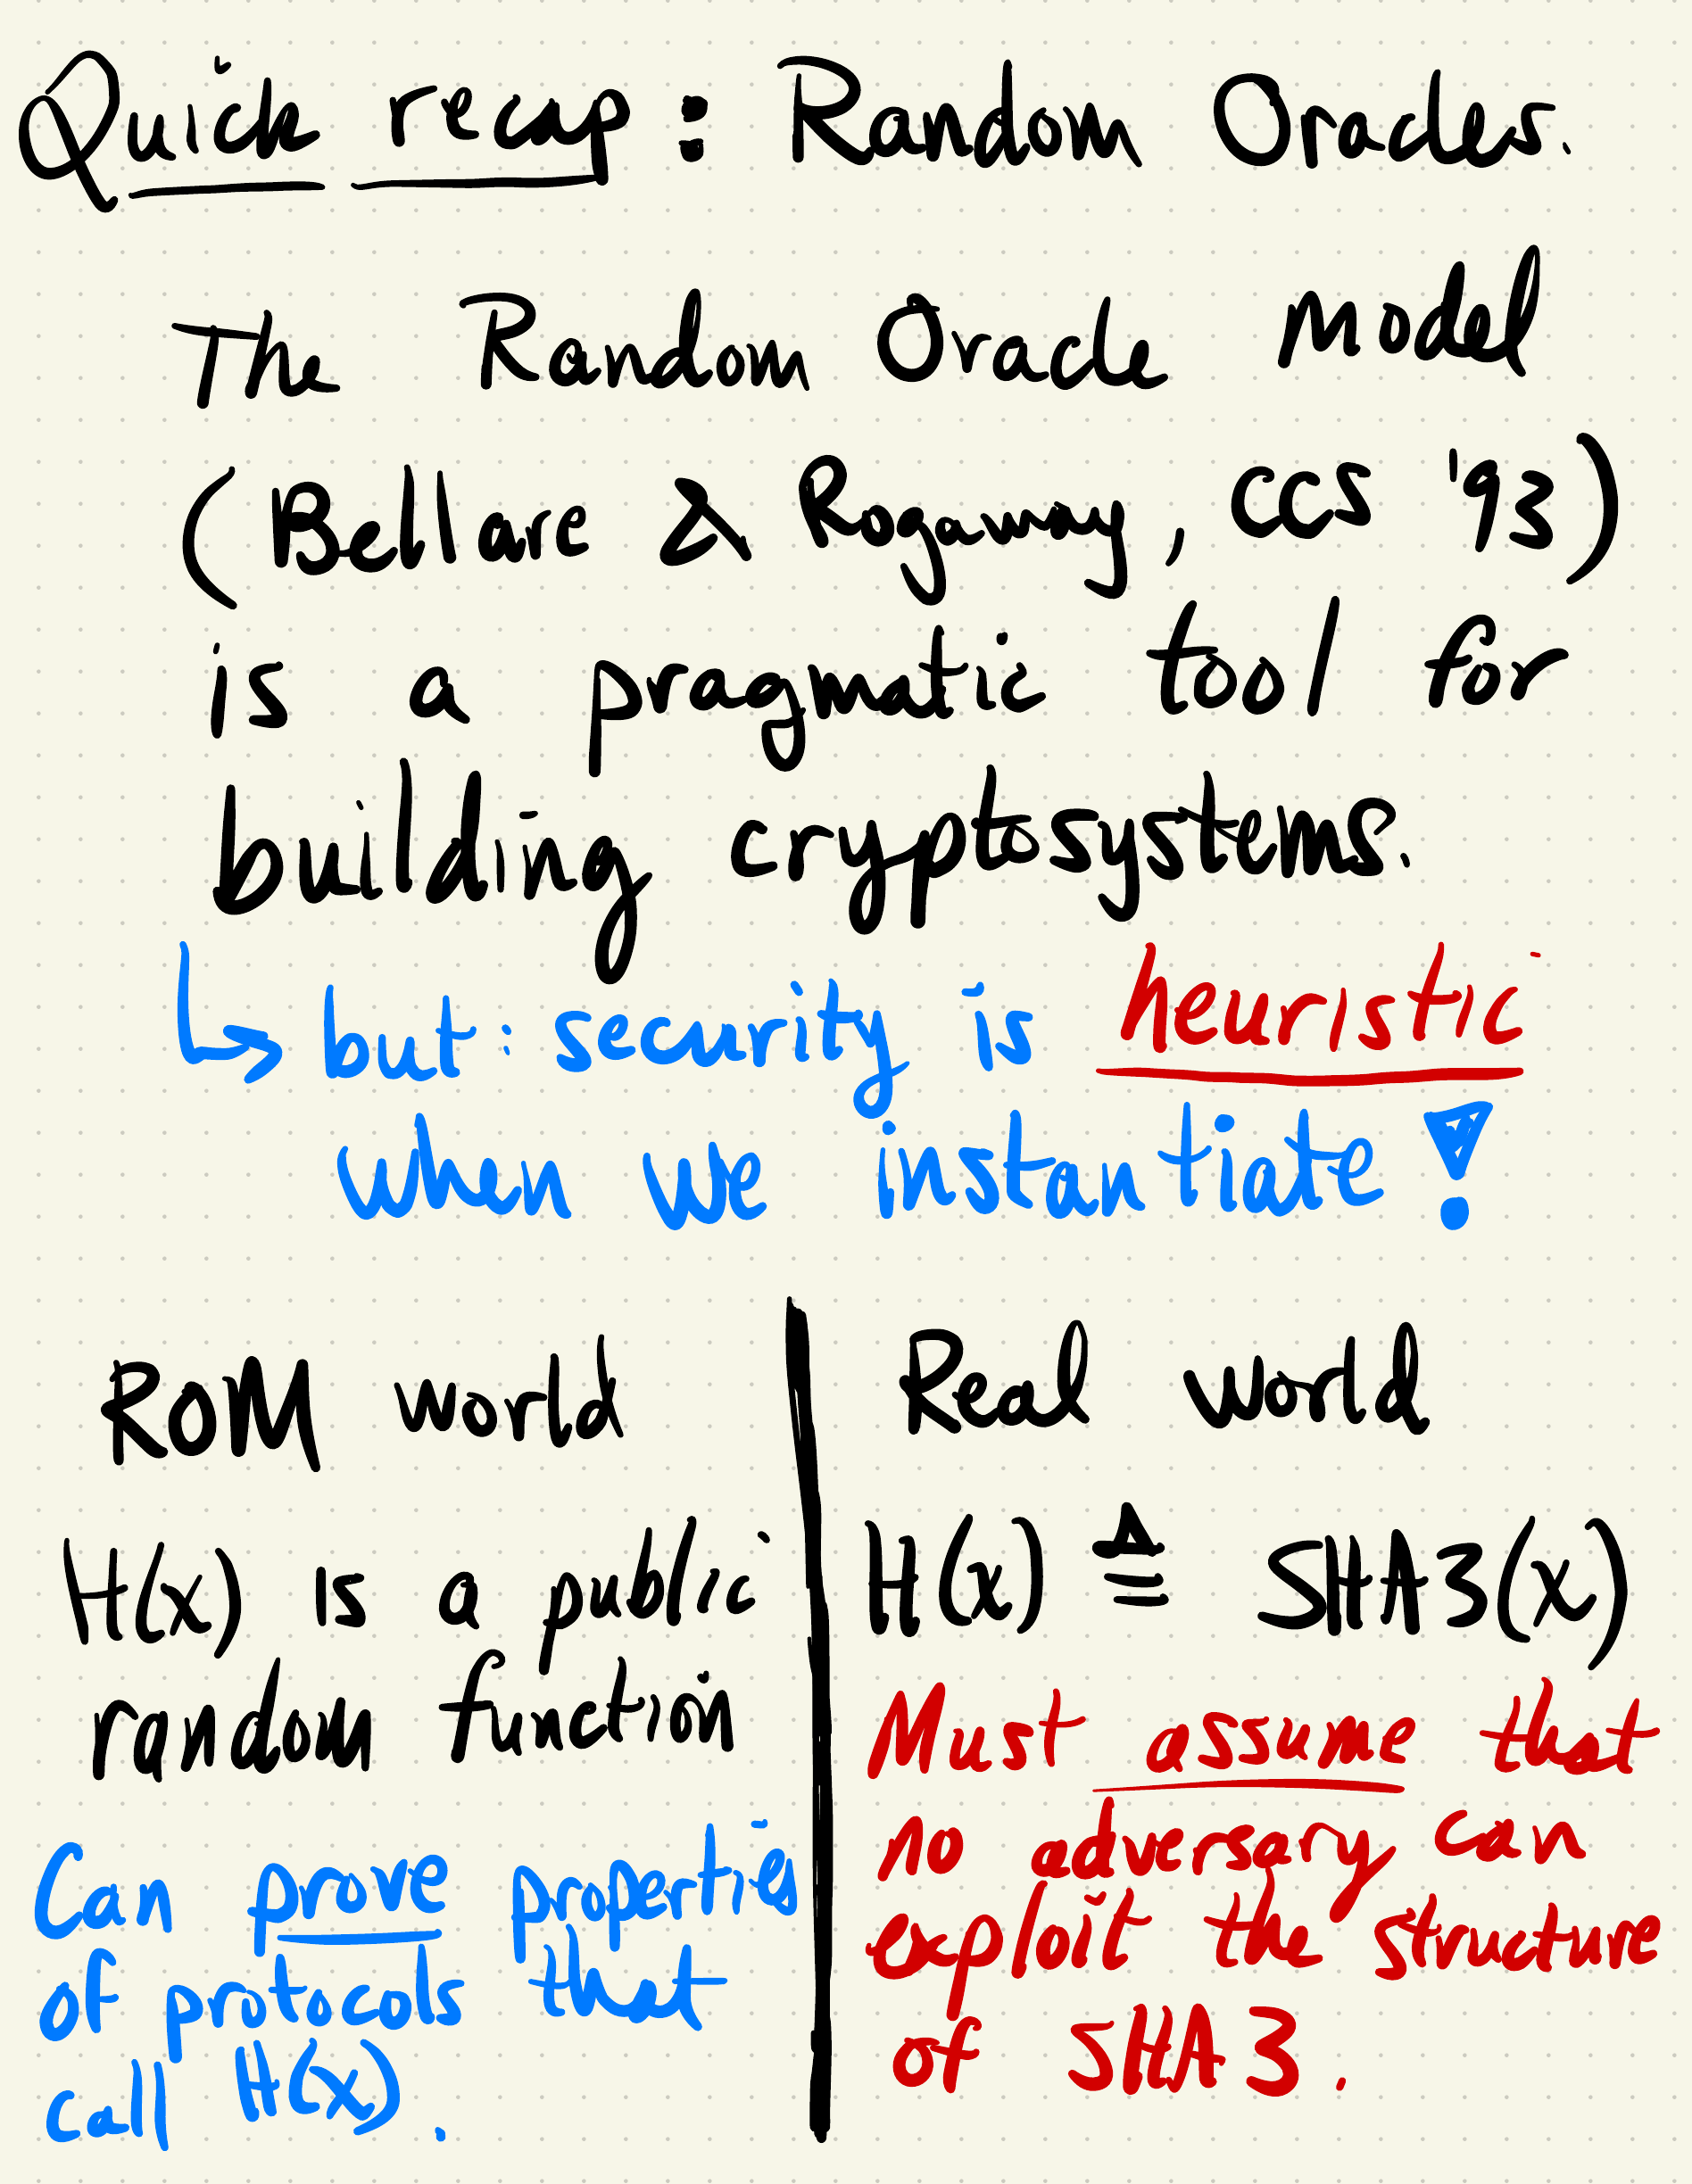 Quick recap: Random Oracles.
The Random Oracle Model
(Bellare & Rogaway, CCS '93)
is a pragmatic tool for
building cryptosystems.
↳ but: security is heuristic
when we instantiate!
ROM world
H(x) is a public
random function
Can prove properties
of protocols that
call H(x).
Real world
H(x) ≜ SHA3(x)
Must assume that
no adversary can
exploit the structure
of SHA3.